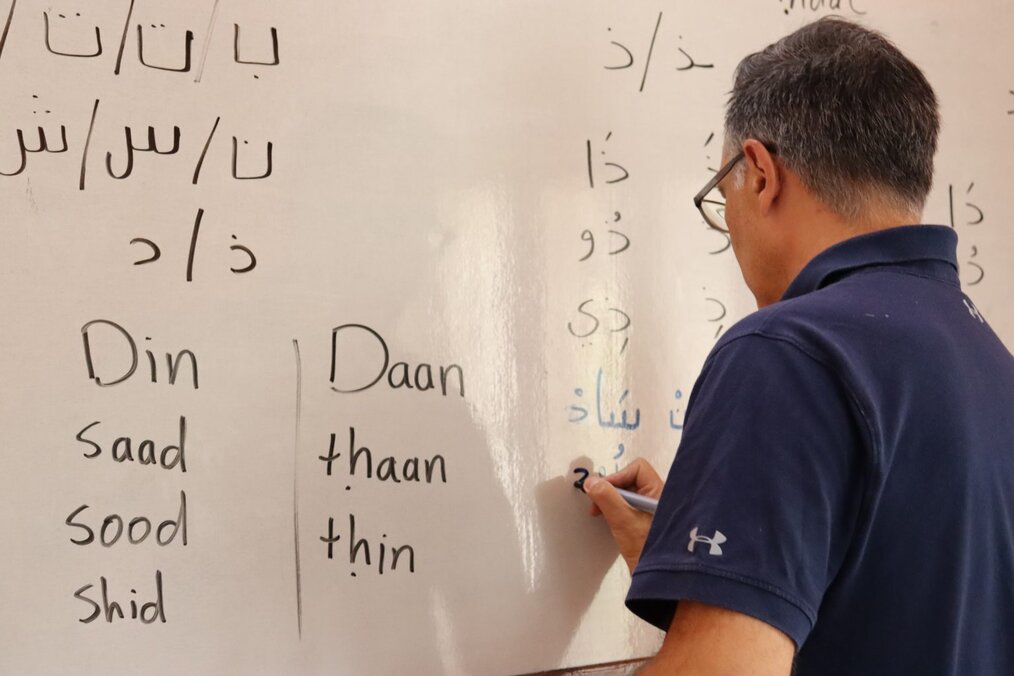 ب / ت / ت /
ن / س / ش
ذ / د
Din
saad
sood
shid
Daan
tḥaan
tḥin
ـذ / ذ
ذَا
ذُو
ذِي
ذَا
ذُ